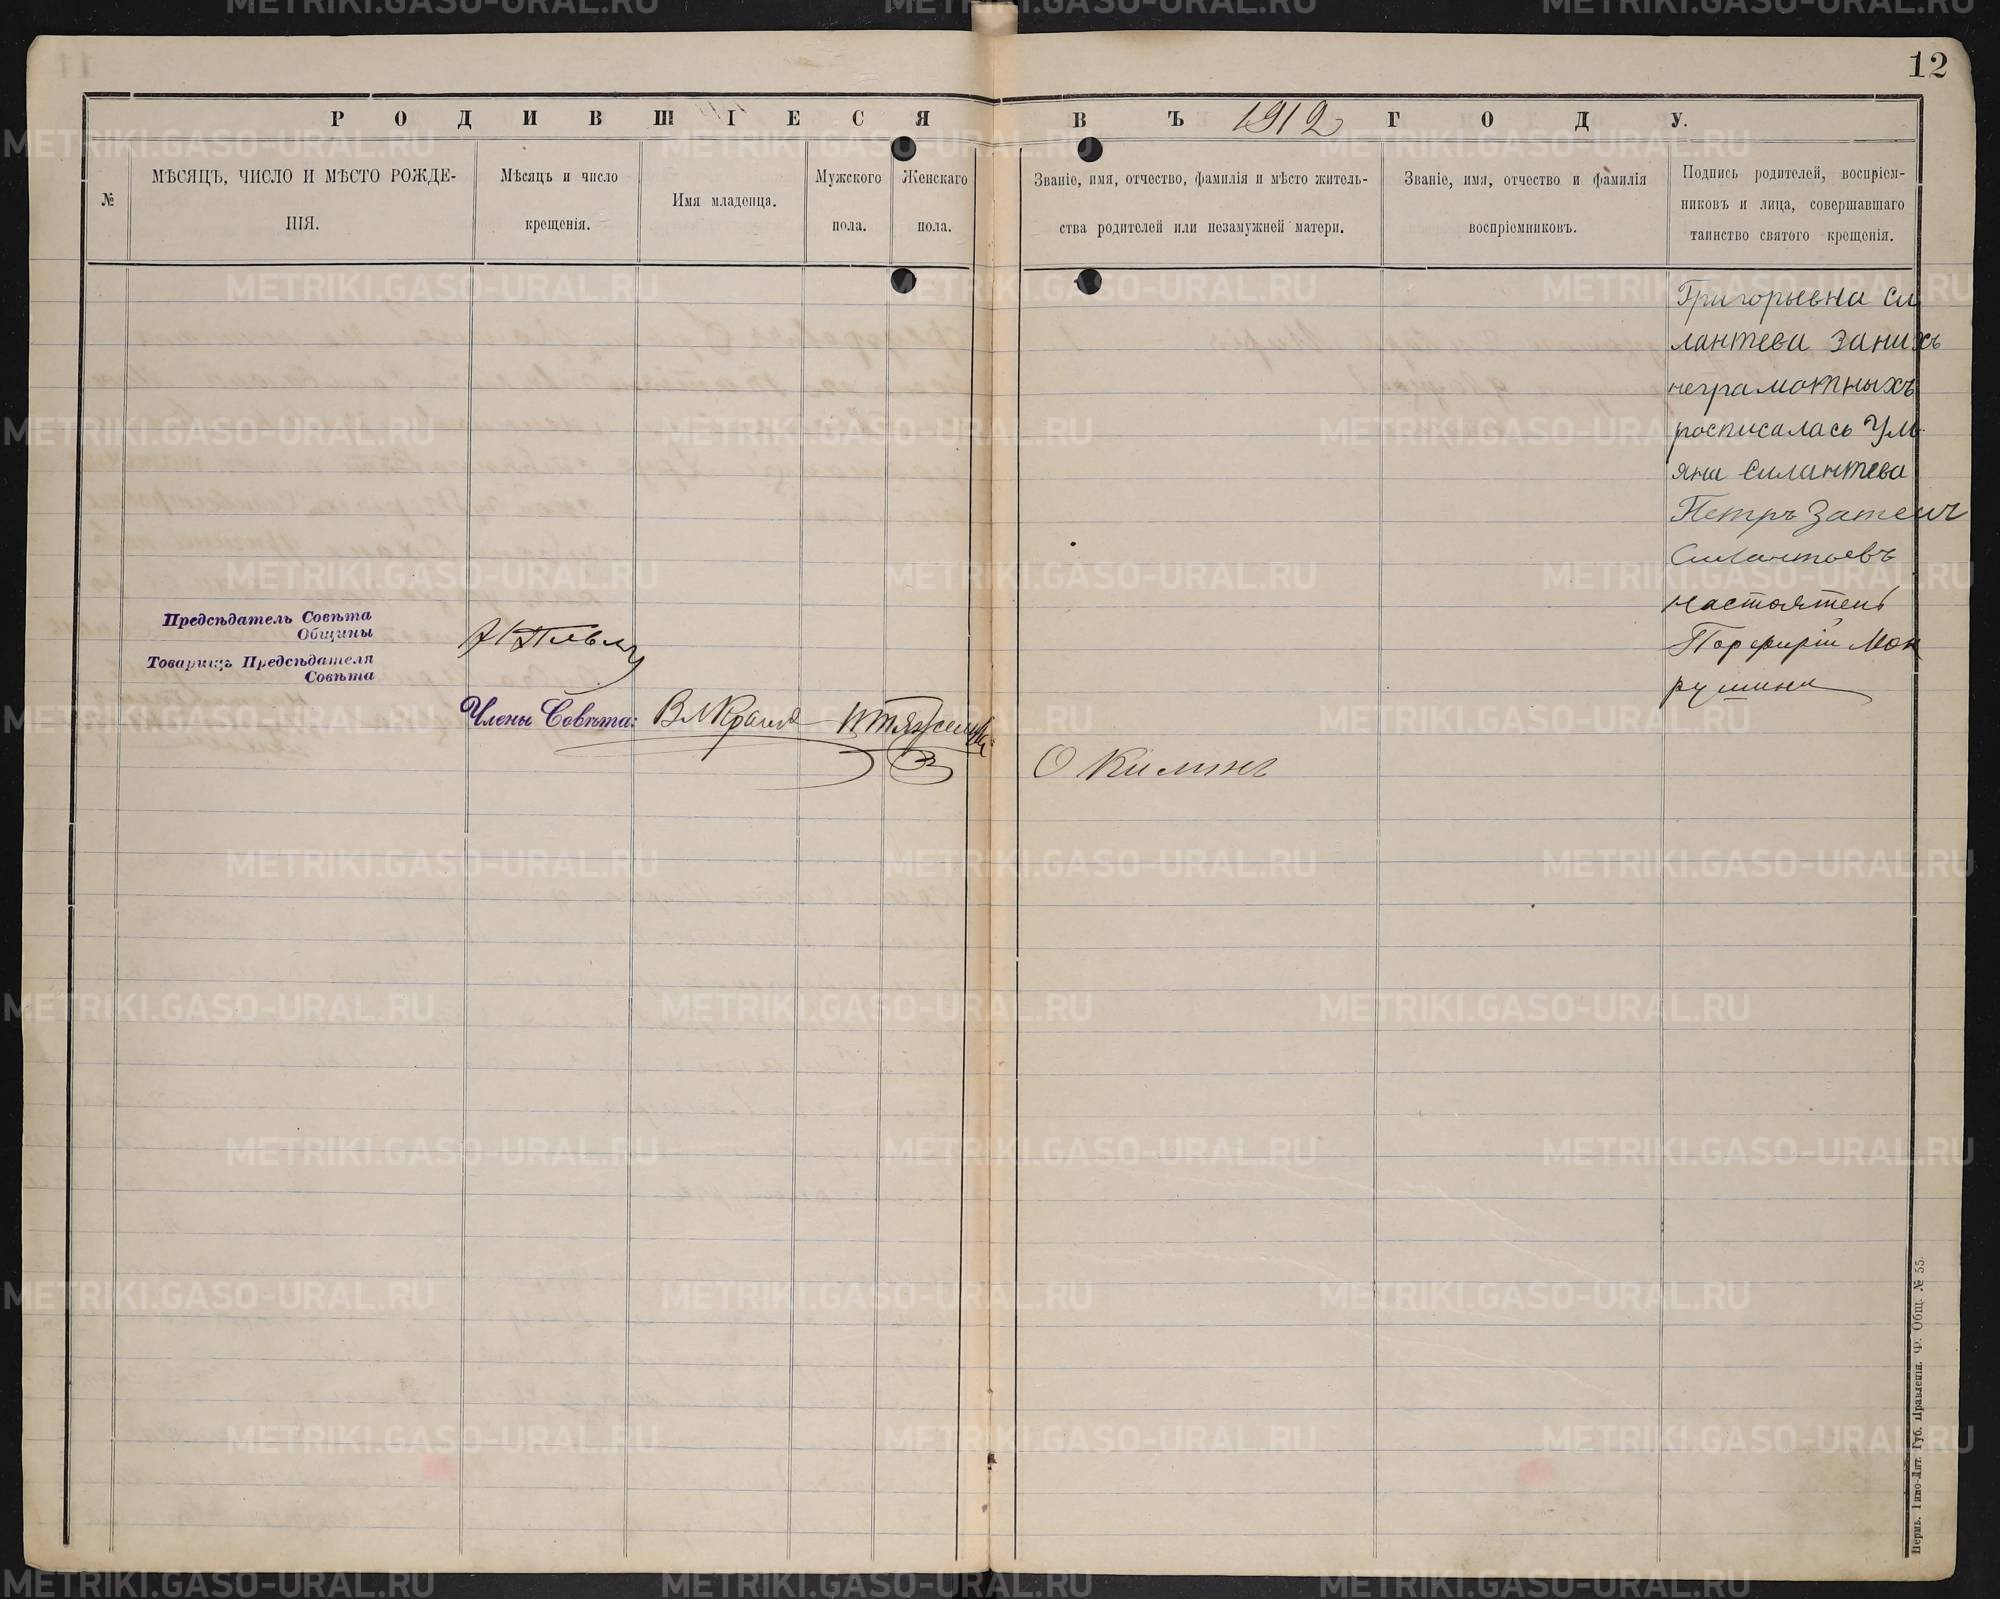 12
РОДИВШІЕСЯ ВЪ 1912 ГОДУ.
№
МѢСЯЦЪ, ЧИСЛО И МѢСТО РОЖДЕ-
НІЯ.
Мѣсяцъ и число
крещенія.
Имя младенца.
Мужского
пола.
Женскаго
пола.
Званіе, имя, отчество, фамилія и мѣсто житель-
ства родителей или незамужней матери.
Званіе, имя, отчество и фамилія
воспріемниковъ.
Подпись родителей, воспріем-
никовъ и лица, совершавшаго
таинство святого крещенія.
Григорьевна Си
лантева за нихъ
неграмотныхъ
росписалась Уль
яна Силантева
Петръ
Силантьевъ
настоятель
Порфирій Мок
рушинъ
Предсѣдатель Совѣта
Общины
Товарищъ Предсѣдателя
Совѣта
Члены Совѣта:
О Килинъ
Пермь. Типо-Лит. Губ. Правленія. Ф. Общ. № 55.
METRIKI.GASO-URAL.RU